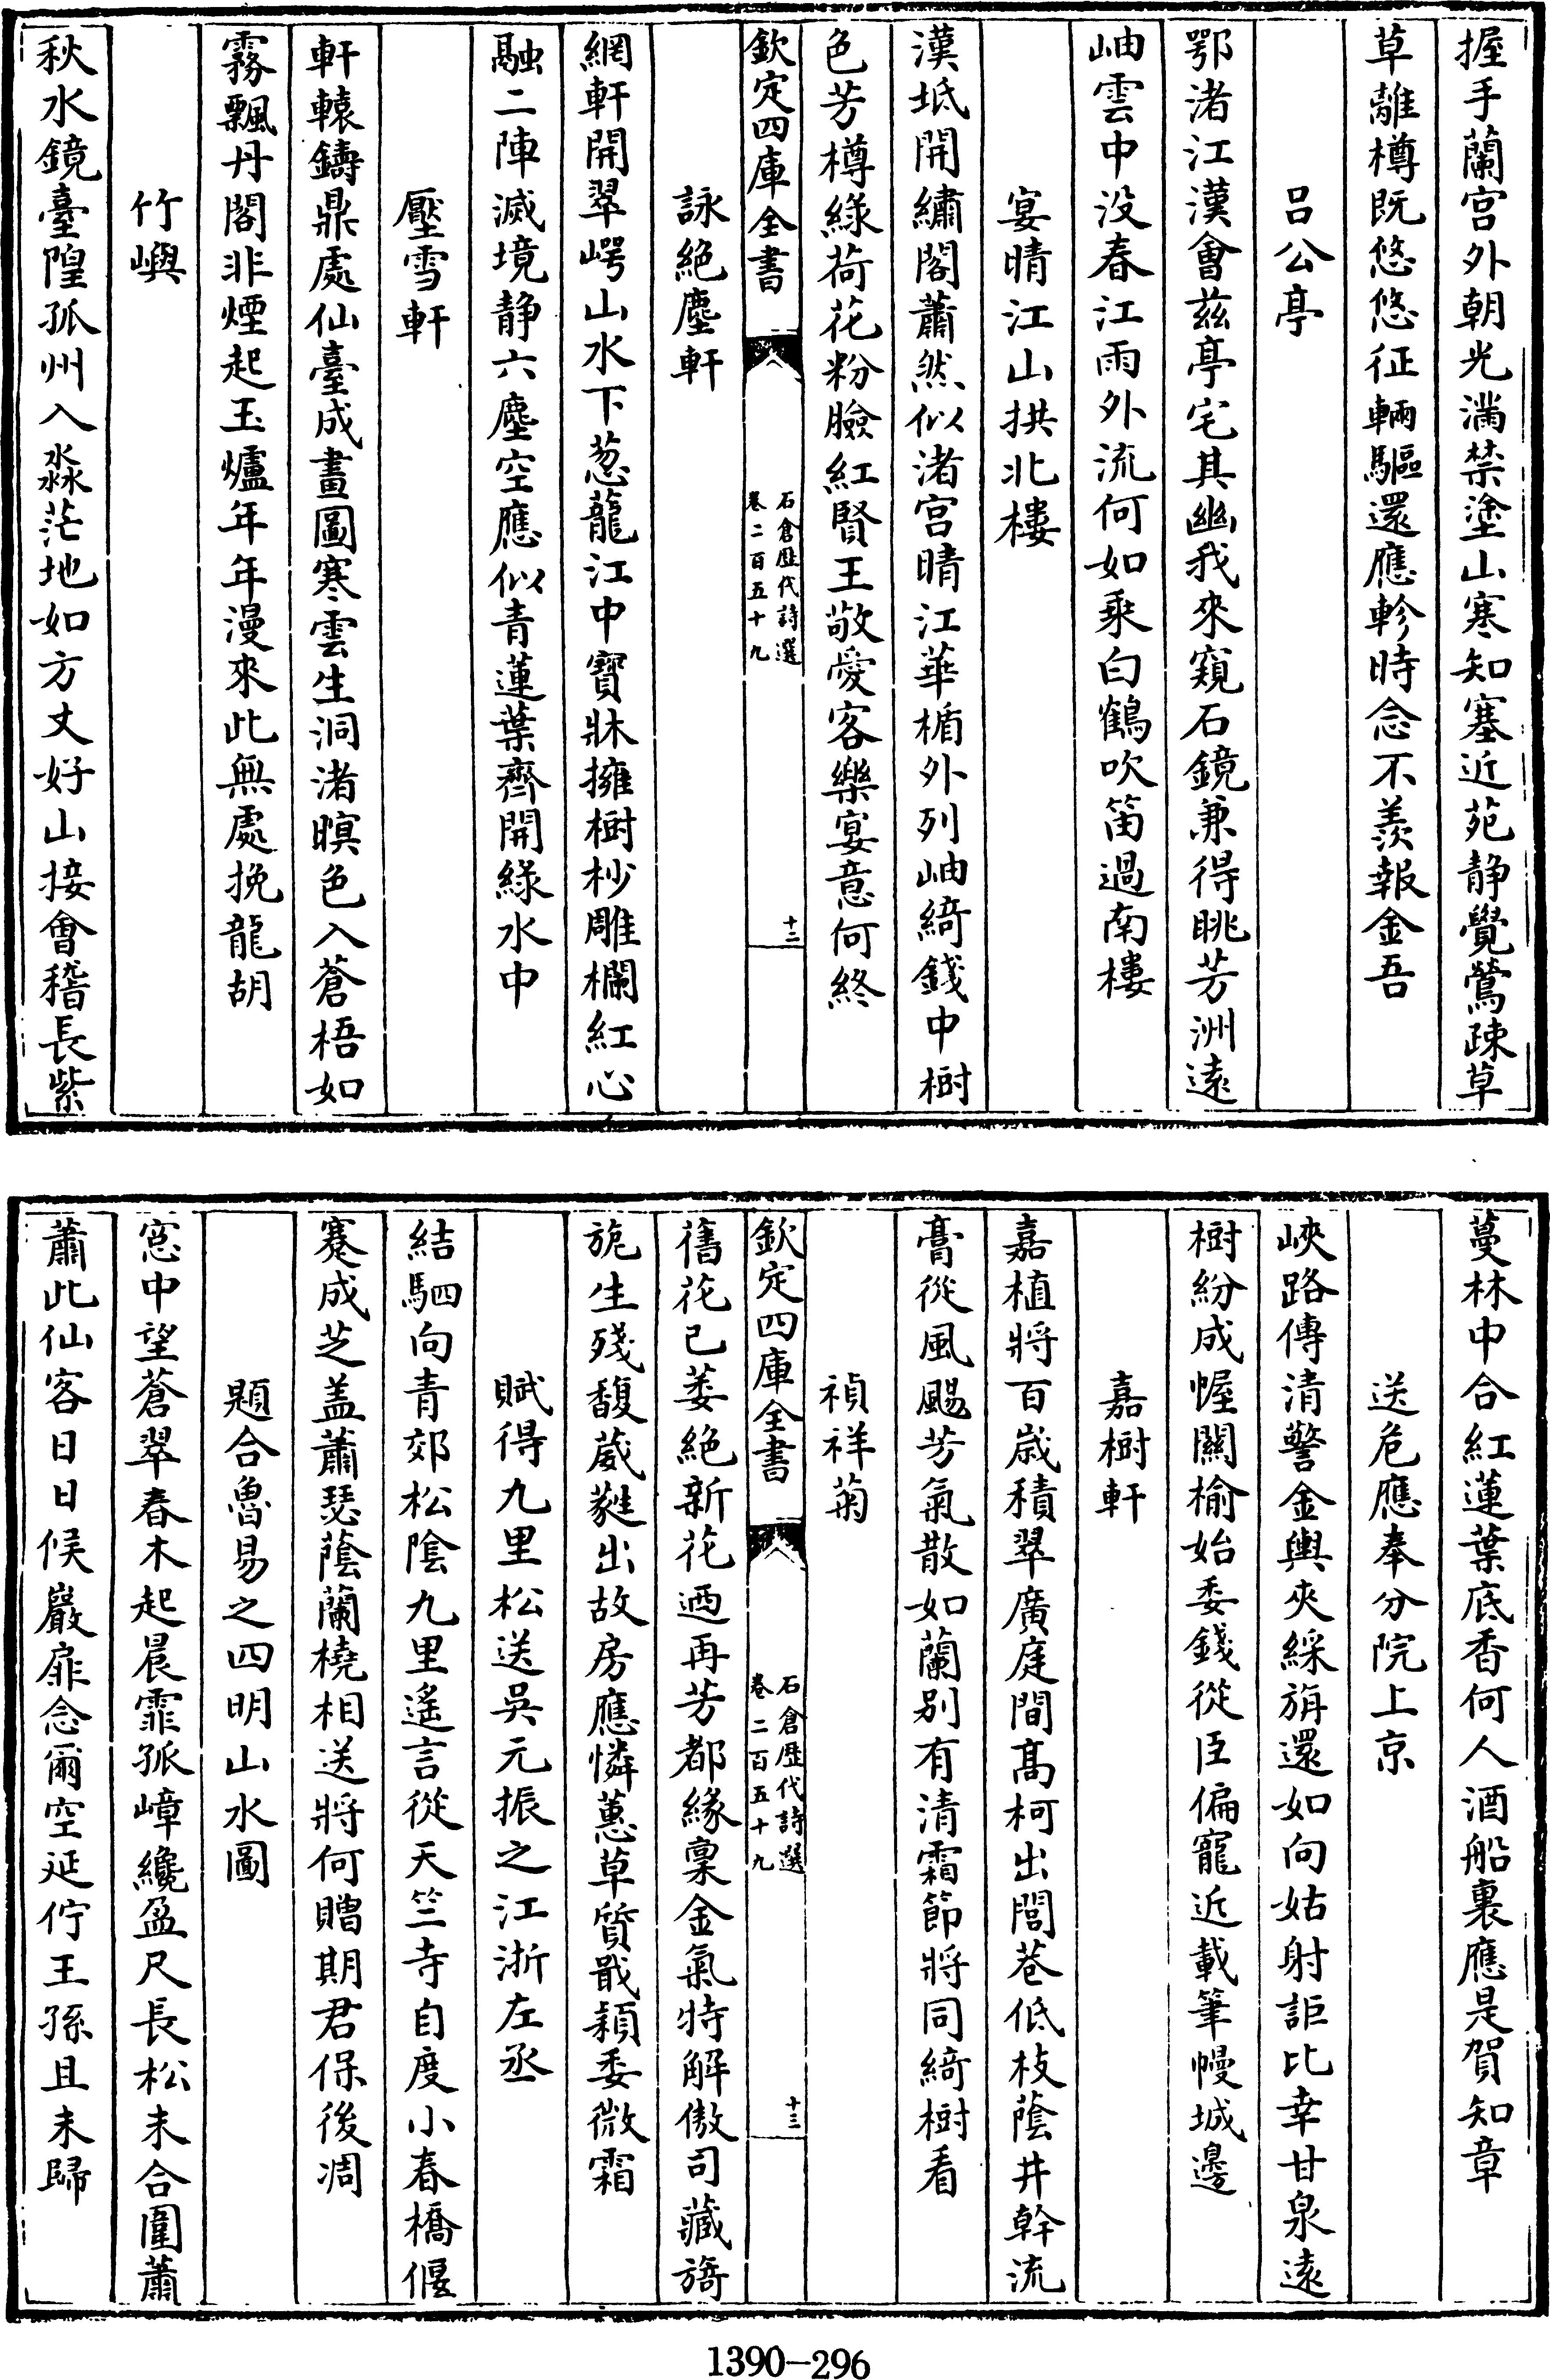 握手蘭宫外朝光滿禁塗山寒知塞近苑静覺鶯疎草
草離樽既悠悠征輛驅還應軫時念不羨報金吾
吕公亭
鄂渚江漢會兹亭宅其幽我來窺石鏡兼得眺芳洲遠
岫雲中没春江雨外流何如乘白鶴吹笛過南樓
宴晴江山拱北樓
漢坻開繡閣蕭然似渚宫晴江華楯外列岫綺錢中樹
色芳樽緑荷花粉臉紅賢王敬愛客樂宴意何終
欽定四庫全書
石倉歷代詩選
卷二百五十九
十二
詠絶塵軒
網軒開翠崿山水下葱蘢江中寳牀擁樹杪雕欄紅心
融二陣滅境静六塵空應似青蓮葉齊開緑水中
壓雪軒
軒轅鑄鼎處仙臺成畫圖寒雲生洞渚暝色入蒼梧如
霧飄丹閣非煙起玉爐年年漫來此無處挽龍胡
竹嶼
秋水鏡臺隍孤州入淼茫地如方丈好山接會稽長紫
蔓林中合紅蓮葉底香何人酒船裏應是賀知章
送危應奉分院上京
峽路傳清警金輿夾綵旃還如向姑射詎比幸甘泉遠
樹紛成幄關榆始委錢從臣偏寵近載筆幔城邊
嘉樹軒
嘉植將百嵗積翠廣庭間髙柯出閭巷低枝蔭井幹流
膏從風颺芳氣散如蘭别有清霜節將同綺樹看
禎祥菊
舊花已萎絶新花迺再芳都緣稟金氣特解傲司藏旖
旎生殘馥葳蕤出故房應憐蕙草質戢頴委微霜
賦得九里松送吳元振之江浙左丞
結駟向青郊松陰九里遙言從天竺寺自度小春橋偃
蹇成芝盖蕭瑟蔭蘭橈相送將何贈期君保後凋
題合魯易之四明山水圖
窓中望蒼翠春木起晨霏孤嶂纔盈尺長松未合圍蕭
蕭此仙客日日候巖扉念爾空延佇王孫且未歸
欽定四庫全書
石倉歷代詩選
卷二百五十九
十三
1390-296